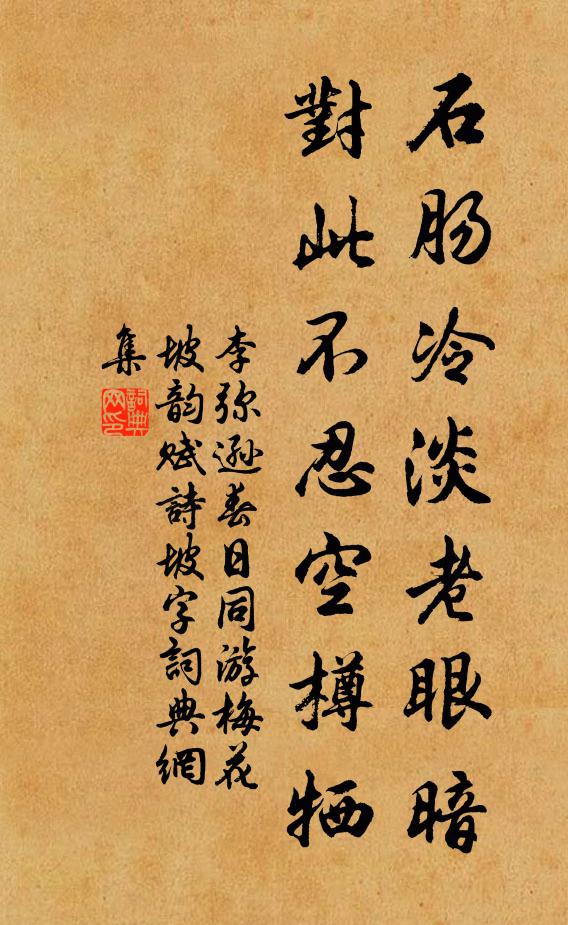 石肠冷淡老眼暗
對此不忍空樽牺
李弥逊春日同游梅花
坡韵赋詩坡字詞典網
集
詞典
网印